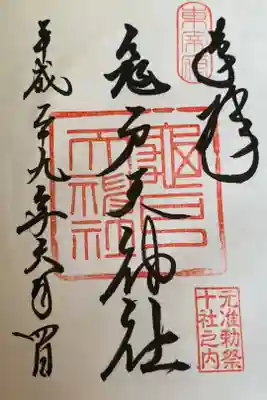 奉拝
東宰府
元准勅祭
十社之内
亀戸天神社
龜戸
天神社
平成二十九年六月四日